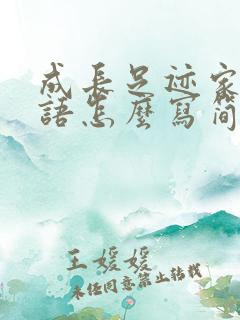 成長足迹家
語怎麼寫简
王媛媛
未经同意禁止转载